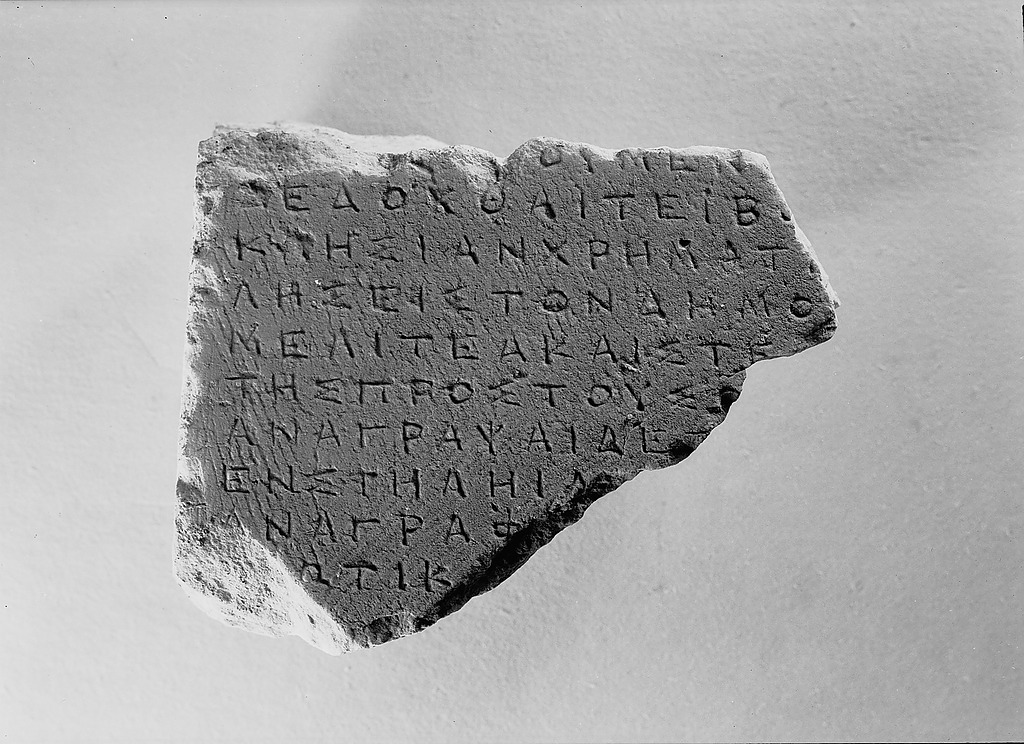 ΟΥΜΕΝ
ΔΕΔΟΧΘΑΙΤΕΙΒ
ΚΛΗΣΙΑΝΧΡΗΜΑΤ
ΛΗΣΕΙΣΤΟΝΔΗΜΟ
ΜΕΛΙΤΕΑΚΑΙΣΤΕ
ΤΗΣΠΡΟΣΤΟΥΣ
ΑΝΑΓΡΑΨΑΙΔΕΤ
ΕΝΣΤΗΛΗΙΛ
ΑΝΑΓΡΑΦ
ΩΤΙΚ